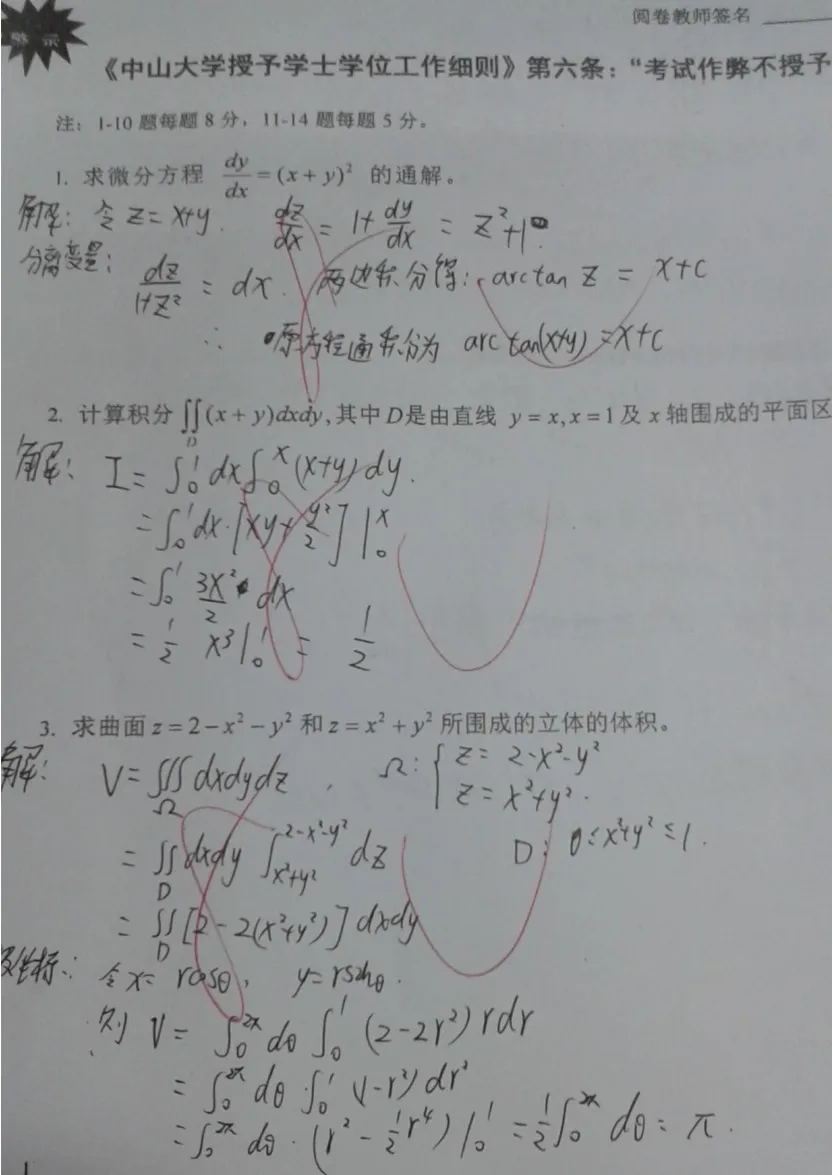 警示
阅卷教师签名
《中山大学授予学士学位工作细则》第六条：“考试作弊不授予
注：1-10 题每题 8 分，11-14 题每题 5 分。
1. 求微分方程 dy/dx = (x + y)² 的通解。
解：令 z = x+y. dz/dx = 1+ dy/dx = z²+1.
分离变量：dz/(1+z²) = dx. 两边积分得：arctan z = x+c
∴ 原方程通积分为 arc tan(x+y) = x+c
2. 计算积分 ∬_D (x + y)dxdy, 其中 D 是由直线 y = x, x = 1 及 x 轴围成的平面区
解：I = ∫₀¹ dx ∫₀ˣ (x+y) dy.
= ∫₀¹ dx·[xy + y²/2] |₀ˣ
= ∫₀¹ 3x²/2 dx
= 1/2 x³ |₀¹ = 1/2
3. 求曲面 z = 2 − x² − y² 和 z = x² + y² 所围成的立体的体积。
解：V = ∭_Ω dxdydz , Ω: { z = 2-x²-y²
z = x²+y².
= ∬_D dxdy ∫_{x²+y²}^{2-x²-y²} dz D: 0 ≤ x²+y² ≤ 1.
= ∬_D [2 - 2(x²+y²)] dxdy
坐标：令 x = rcosθ, y = rsinθ.
则 V = ∫₀^{2π} dθ ∫₀¹ (2-2r²) rdr
= ∫₀^{2π} dθ·∫₀¹ (1-r²) dr²
= ∫₀^{2π} dθ·(r² - 1/2 r⁴) |₀¹ = 1/2 ∫₀^{2π} dθ = π.